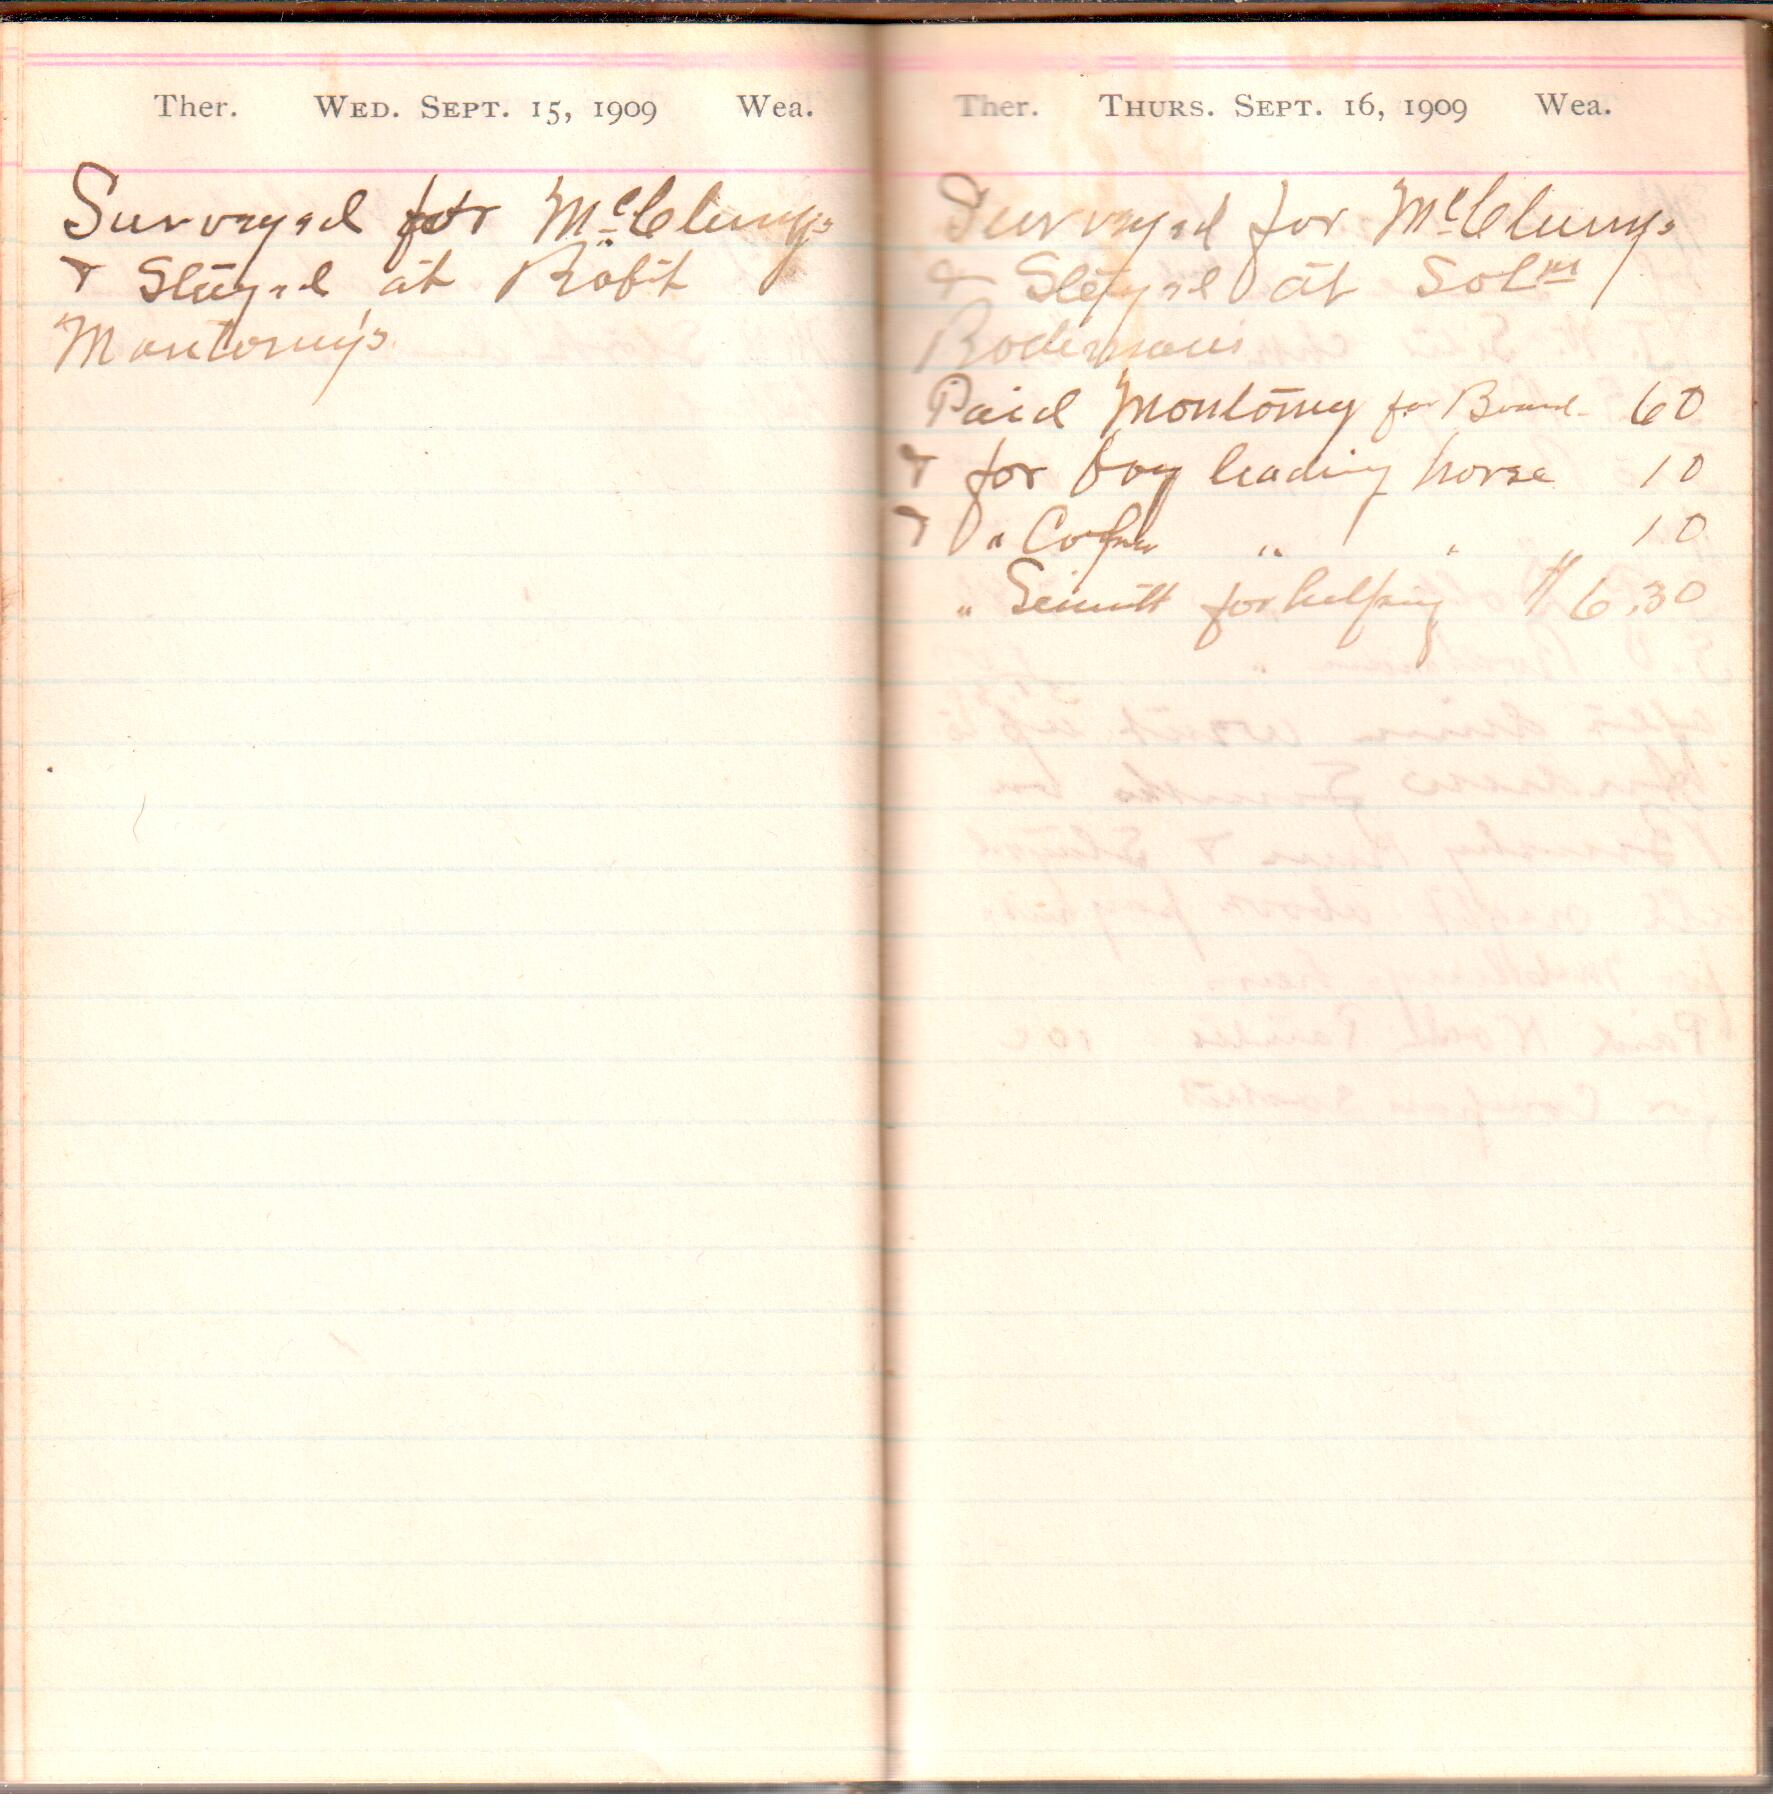 Ther. WED. SEPT. 15, 1909 Wea.
Surveyed for McClungs
& Stayed at Robt
Montomy's
Ther. THURS. SEPT. 16, 1909 Wea.
Surveyed for McClungs
& Stayed at Solm
Paid Montomy for Board 60
& for boy leading horse 10
& " " " 10
" for helping $6.30